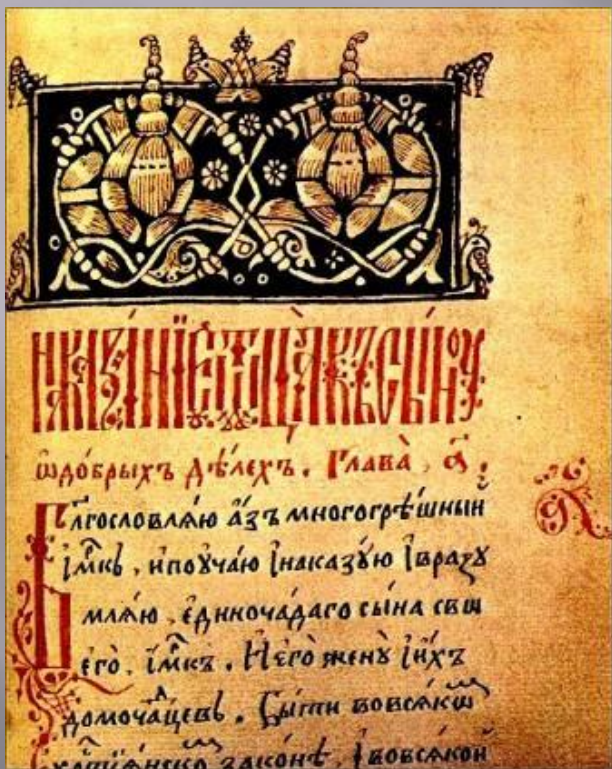 НАКАЗАНИЕ ѾЦА КЪ СЫНУ
ѡдо́брыхъ дѣ́лехъ. Глава̀, а҃.
Бл҃гословлѧ́ю а҆́зъ многогрѣ́шныи
і҆мⷬ҇къ, ипоꙋча́ю і҆наказꙋ́ю і҆вразꙋ
млѧ́ю, единоча́даго сы́на свѡ
его̀, і҆мⷬ҇къ. И҆его̀ женꙋ̀ і҆и҆́хъ
домоча́дцевъ. Бы́ти вовсѧ́кѡ
законѣ, і҆вовсѧ́кои
а҃